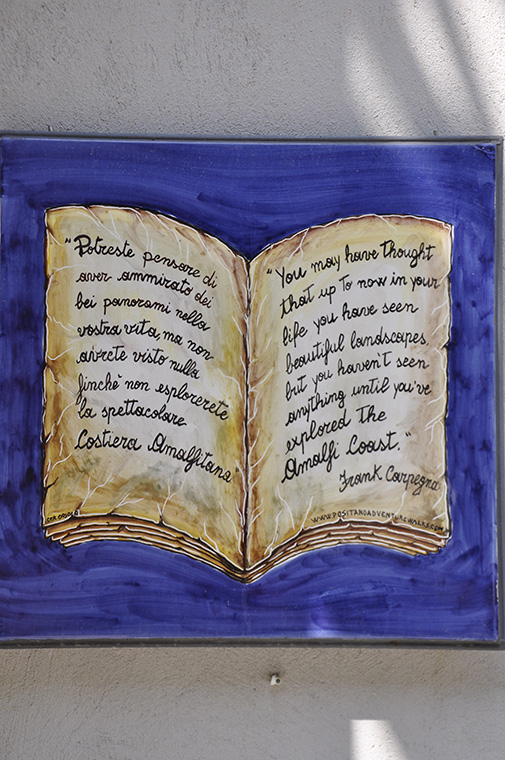 "Potreste pensare di
aver ammirato dei
bei panorami nella
vostra vita, ma non
avrete visto nulla
finchè non esplorerete
la spettacolare
Costiera Amalfitana"
"You may have thought
that up to now in your
life you have seen
beautiful landscapes,
but you haven't seen
anything until you've
explored the
Amalfi Coast."
Frank Carpegna
WWW.POSITANOADVENTUREWALKS.COM